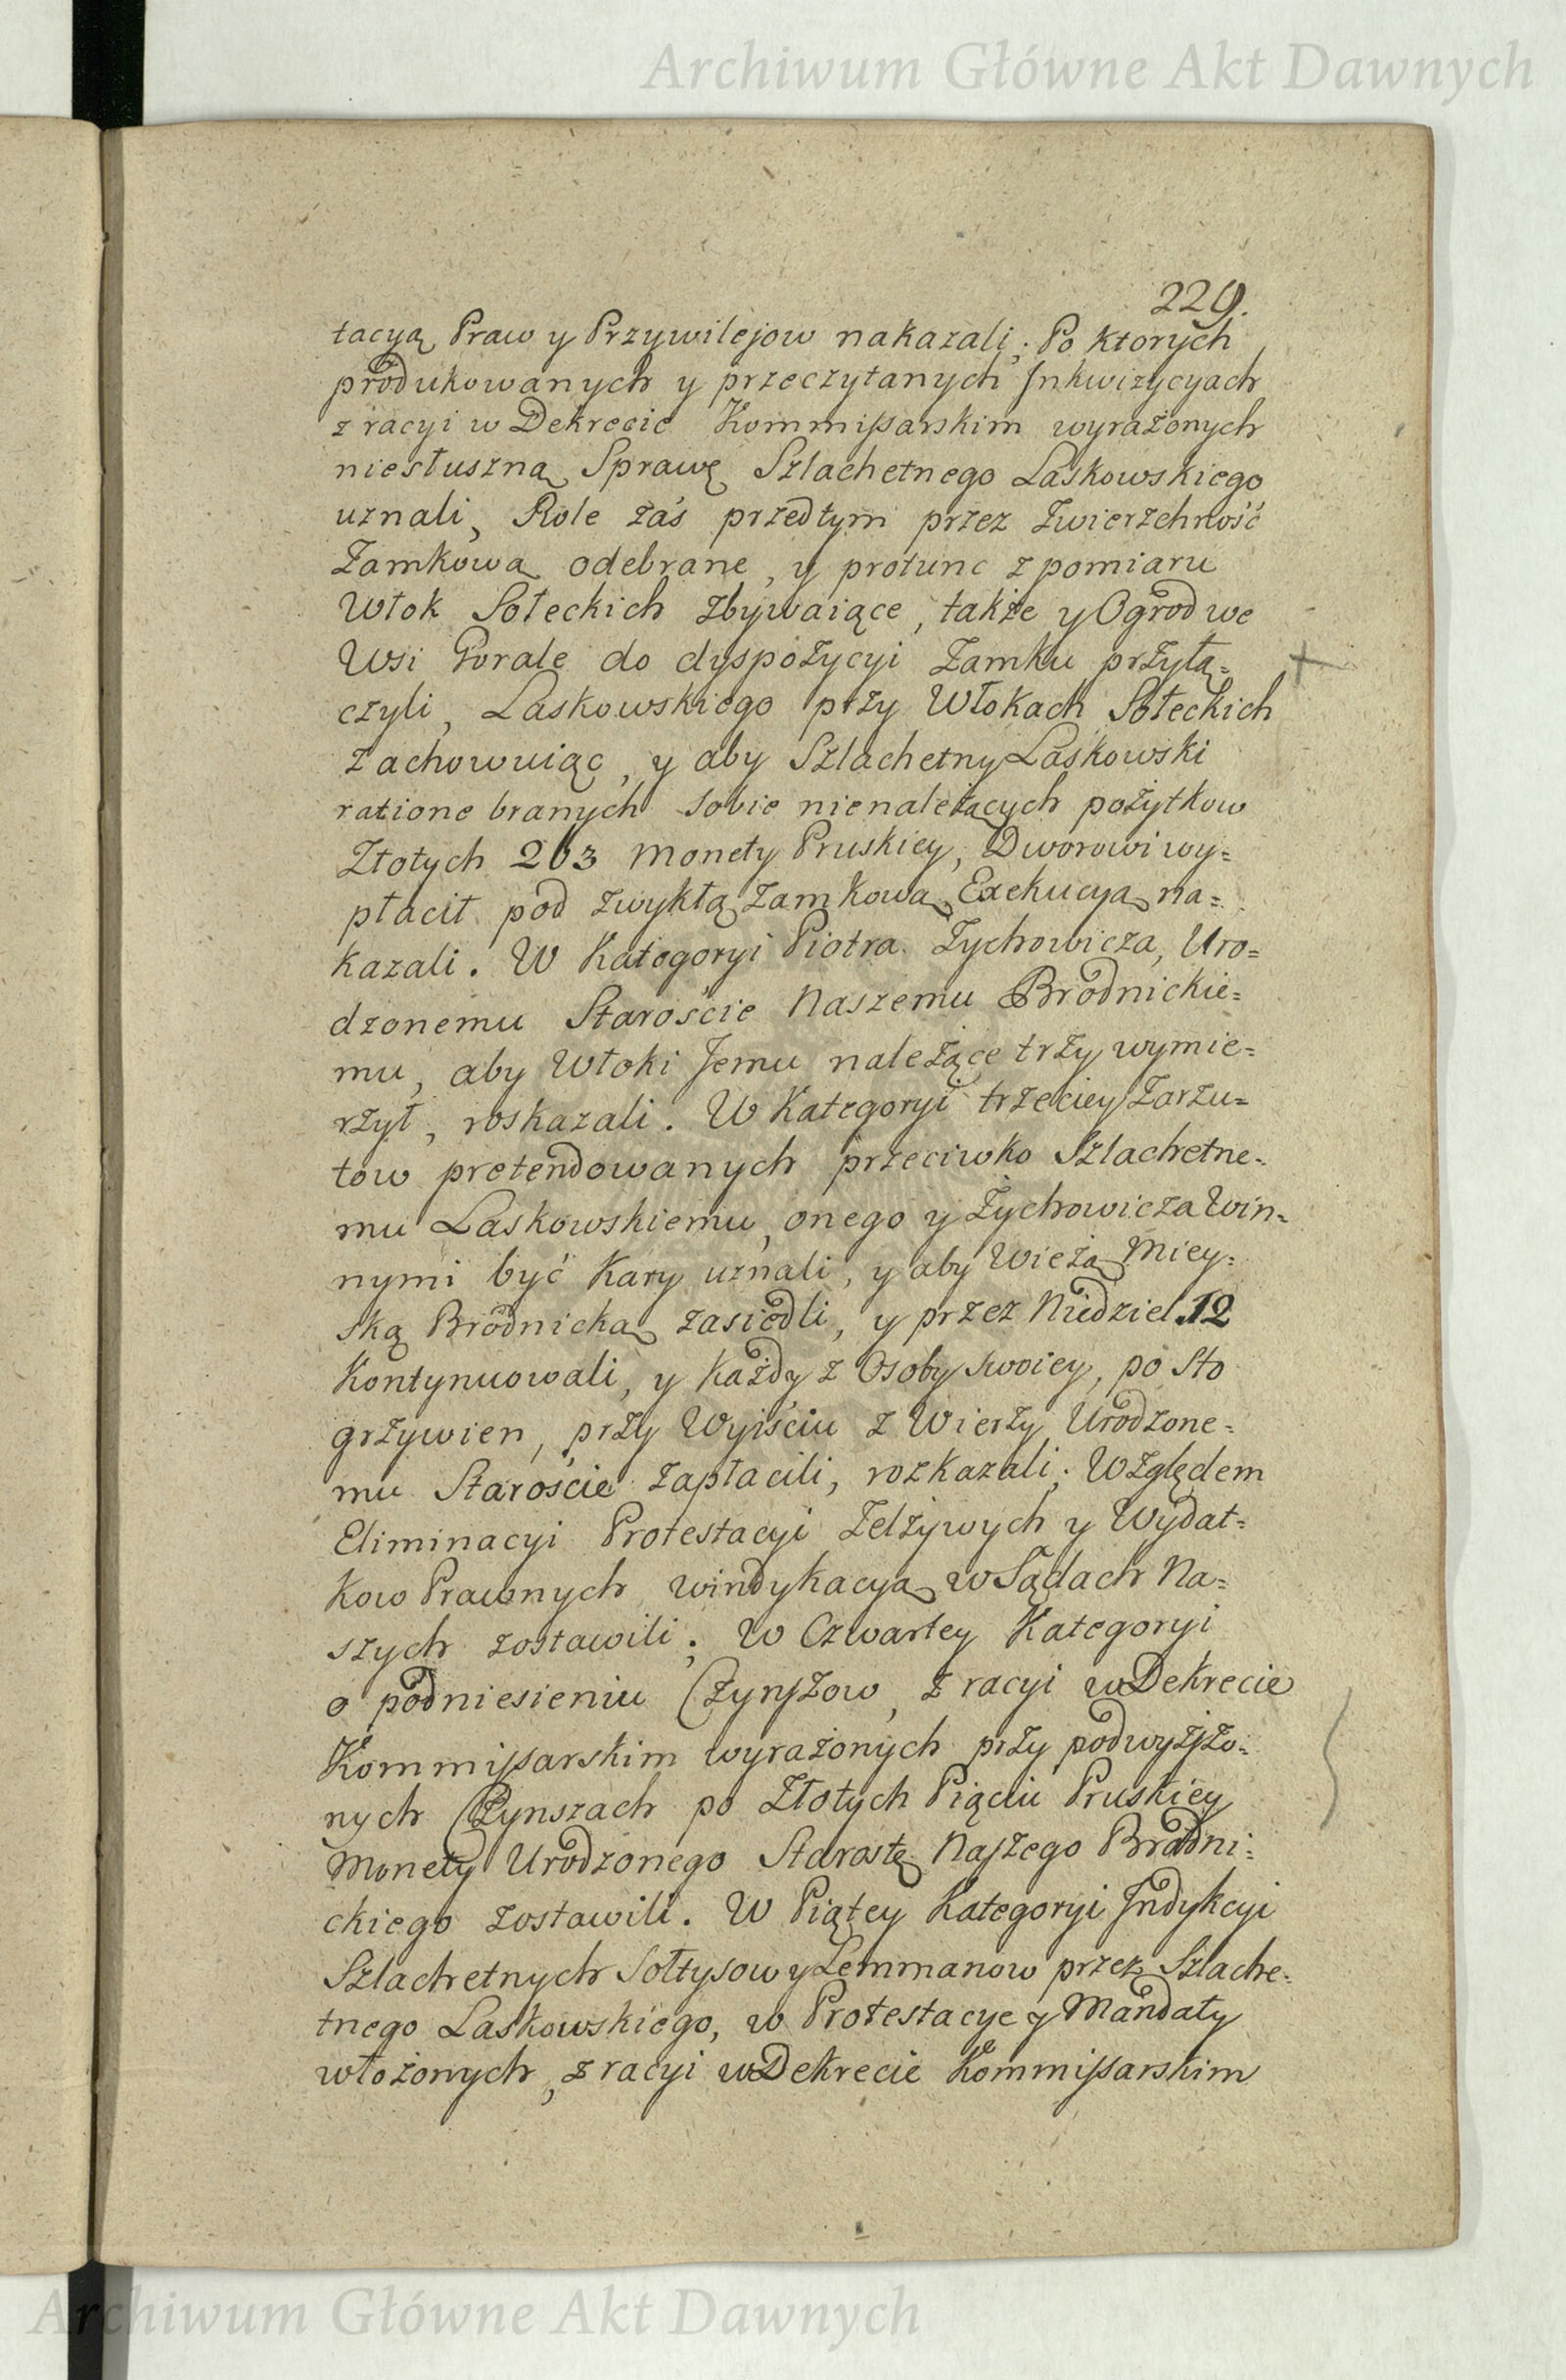 Archiwum Główne Akt Dawnych
229.
tacyą Praw y Przywilejow nakazali; Po ktorych
produkowanych y przeczytanych Inkwizycyach
z racyi w Dekrecie Kommissarskim wyrażonych
niesłuszną Sprawę Szlachetnego Laskowskiego
uznali, Role zaś przedtym przez Zwierzchność
Zamkową odebrane, y protunc z pomiaru
Włok Sołeckich zbywaiące, także y Ogrod we
Wsi Gorale do dyspozycyi Zamku przyłą=
czyli, Laskowskiego przy Włokach Sołeckich
zachowuiąc, y aby Szlachetny Laskowski
ratione branych sobie nienależących pożytkow
Złotych 263 monety Pruskiey, Dworowi wy=
płacił pod zwykłą Zamkową Exekucyą na=
kazali. W Kategoryi Piotra Zychowicza, Uro=
dzonemu Staroście Naszemu Brodnickie=
mu, aby Włoki Jemu należące trzy wymie=
rzył, roskazali. W Kategoryi trzeciey Zarzu=
tow pretendowanych przeciwko Szlachetne=
mu Laskowskiemu, onego y Zychowicza Win=
nymi być Kary uznali, y aby Wieżą Miey=
ską Brodnicką zasiedli, y przez Niedziel 12
Kontynuowali, y każdy z Osoby swoiey, po sto
grzywien, przy Wyiściu z Wierzy Urodzone=
mu Staroście zapłacili, rozkazali; Względem
Eliminacyi Protestacyi Zelżywych y Wydat=
kow Prawnych windykacyą w Sądach Na=
szych zostawili; W Czwartey Kategoryi
o podniesieniu Czynszow, z racyi w Dekrecie
Kommissarskim wyrażonych przy podwyższo=
nych Czynszach po Złotych Piąciu Pruskiey
Monety Urodzonego Starostę Naszego Brodni=
ckiego zostawili. W Piątey Kategoryi Indykcyi
Szlachetnych Sołtysow y Lemmanow przez Szlache=
tnego Laskowskiego, w Protestacye y Mandaty
włożonych, z racyi w Dekrecie Kommissarskim
Archiwum Główne Akt Dawnych